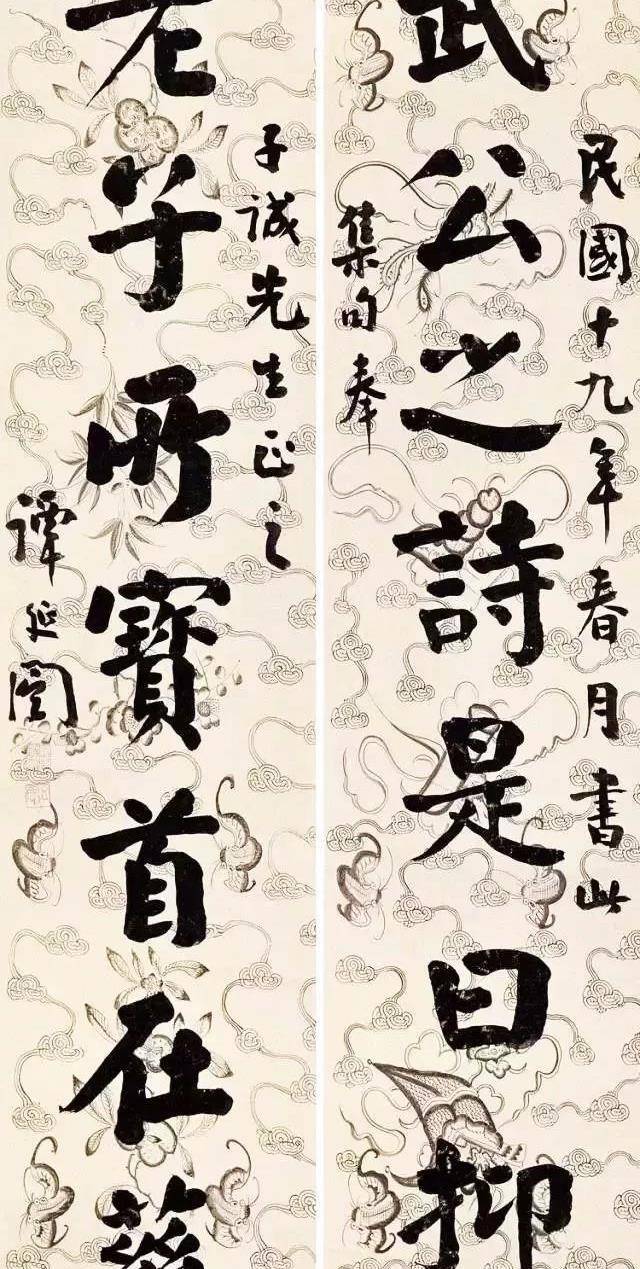 民國十九年春月書此
武公之詩是曰抑
集句奉
子誠先生正之
老子所寶首在慈
譚延闓